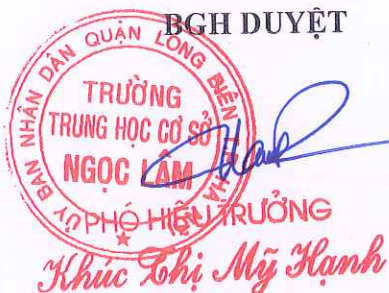 BGH DUYỆT
ỦY BAN NHÂN DÂN QUẬN LONG BIÊN
TRƯỜNG
TRUNG HỌC CƠ SỞ
NGỌC LÂM
PHÓ HIỆU TRƯỞNG
Khúc Thị Mỹ Hạnh